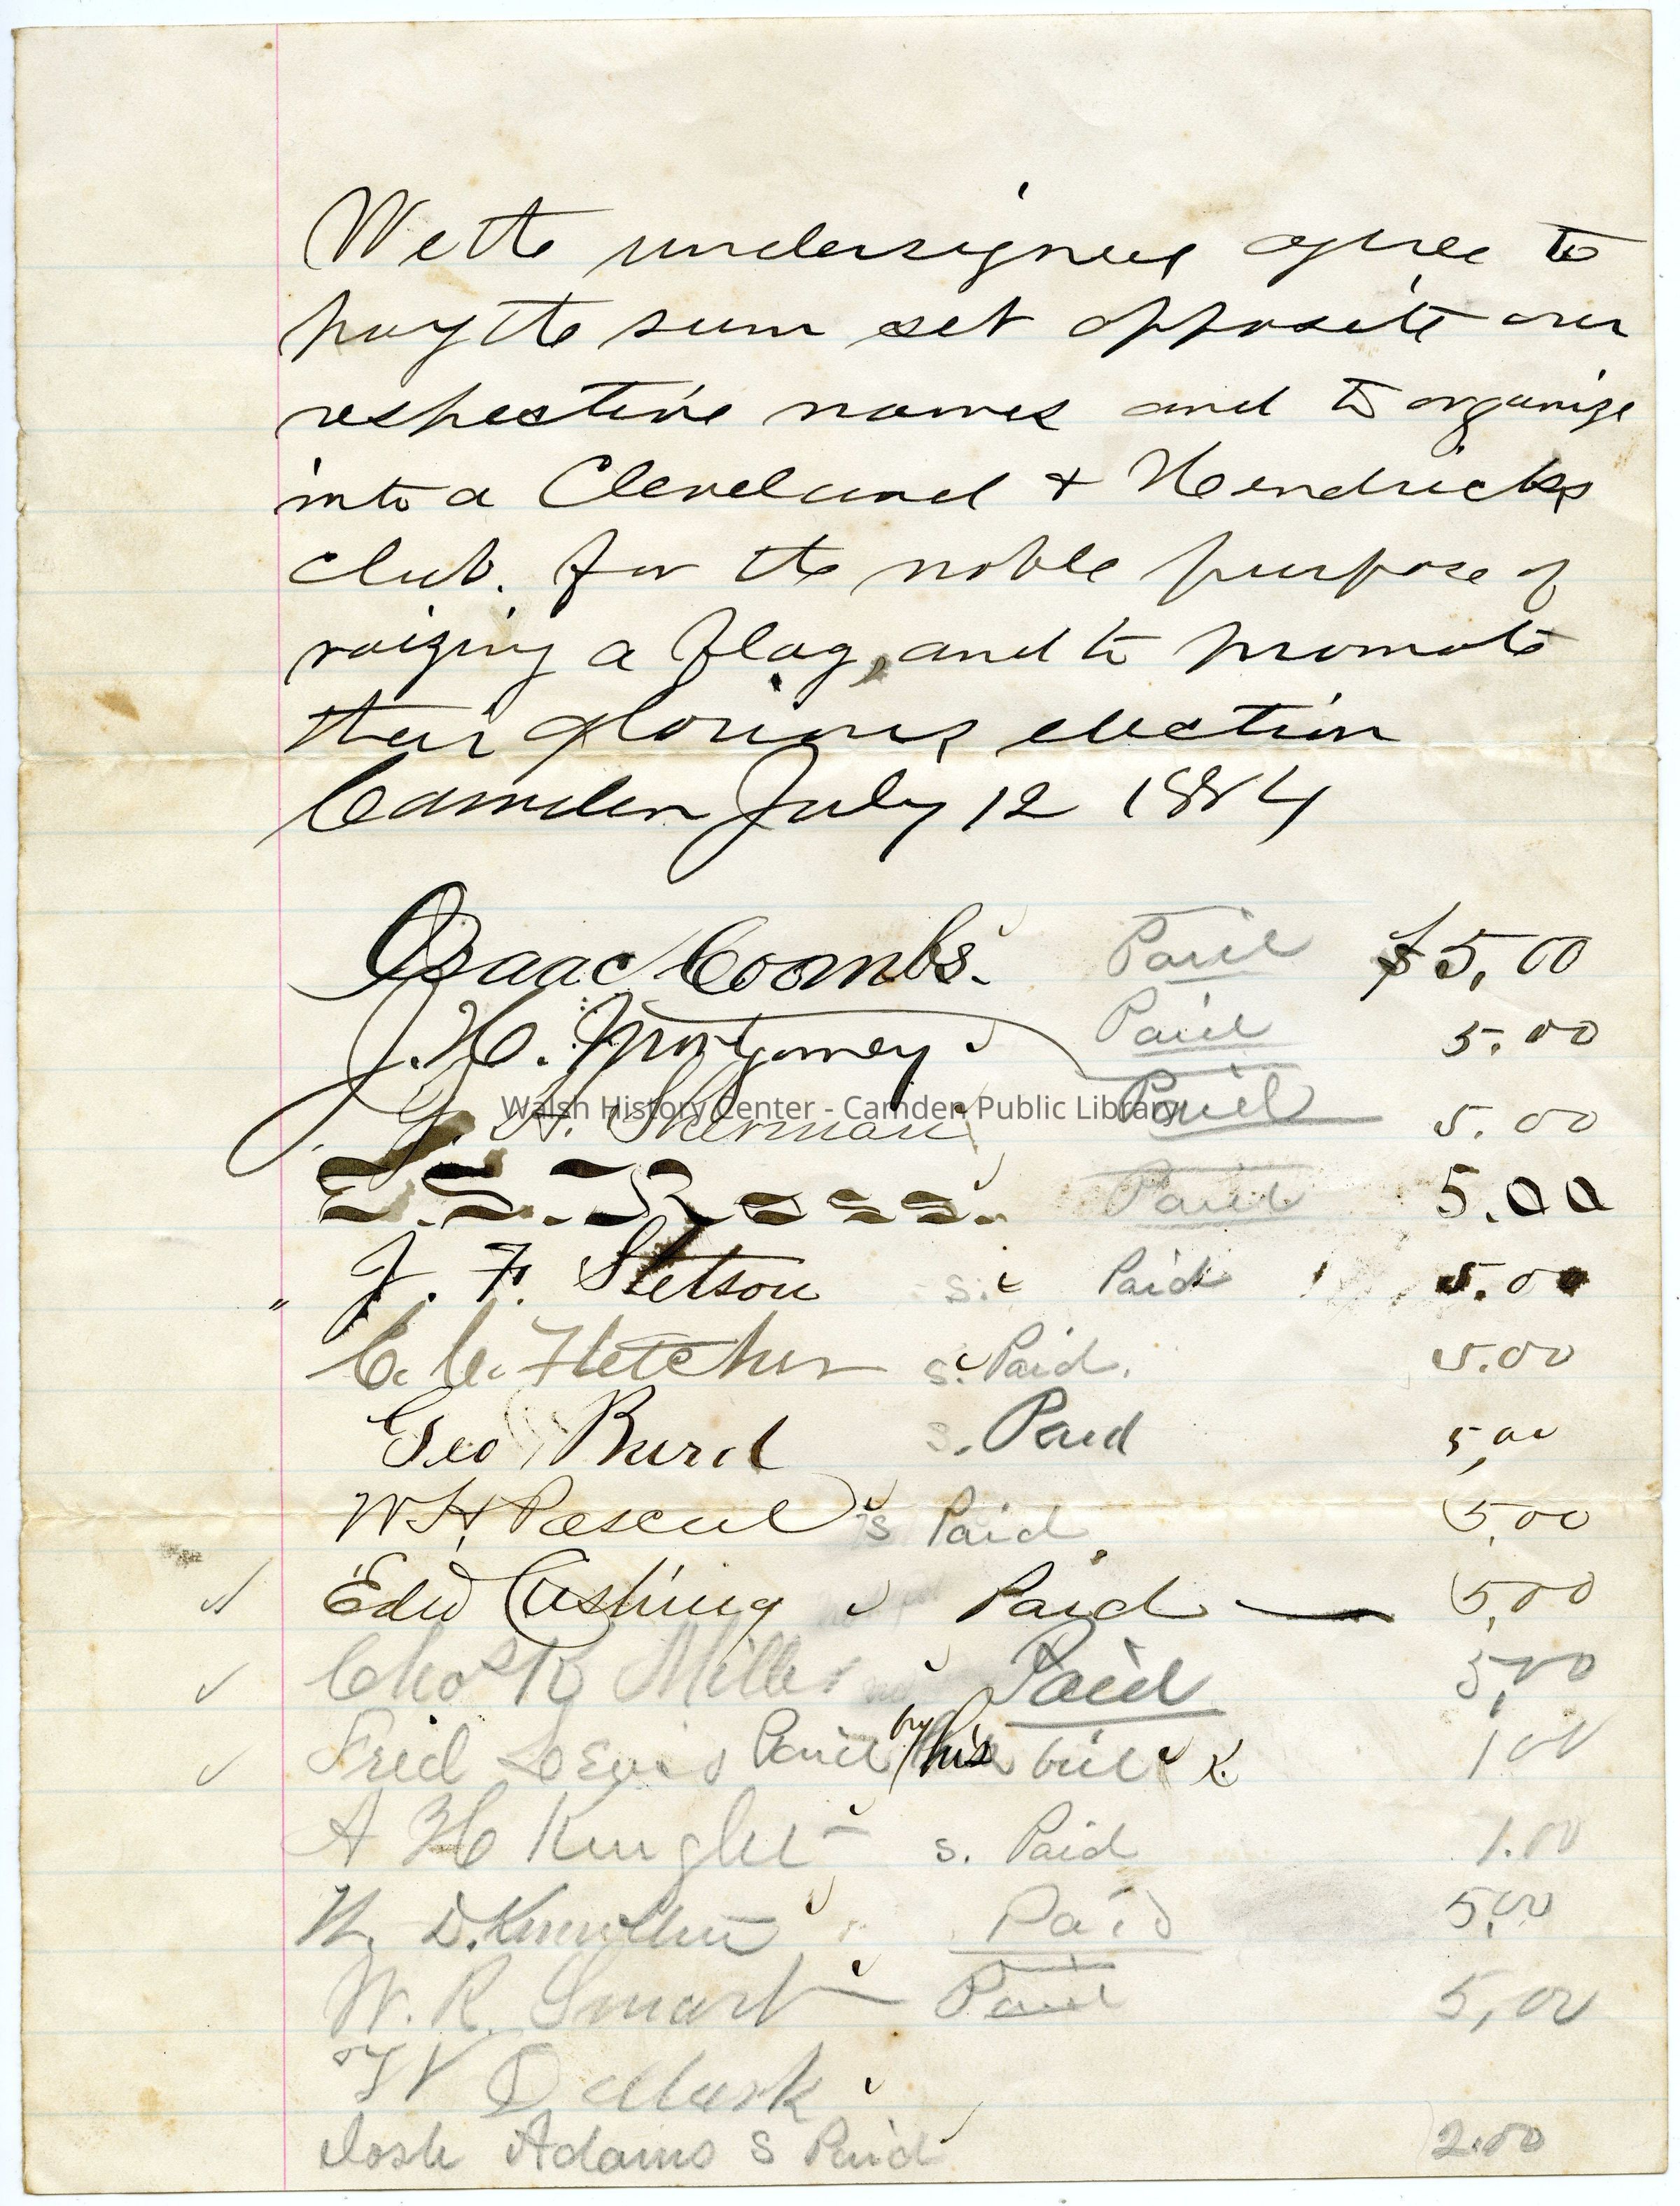 We the undersigned agree to
pay the sum set opposite our
respective names and to organize
into a Cleveland & Hendricks
club. for the noble purpose of
raizing a flag, and to promote
their glorious election
Camden July 12 1884
Isaac Coombs. Paid $5,00
J. H. Montgomery Paid 5.00
J. A. Sherman Paid 5.00
Walsh History Center - Camden Public Library
E. S. Rose. Paid 5.00
" J. F. Stetson s. Paid 5.00
C. C. Fletcher s. Paid. 5.00
Geo Burd s. Paid 5,00
W H Pascal s Paid 5,00
Edw Cushing Paid 5,00
Chas K Miller Paid 5,00
Fred Lewis Paid by his bill 1 00
A H Knight s. Paid 1.00
D. Paid 5,00
W. R. Smart Paid 5,00
Clark
Josh Adams s Paid 2.00